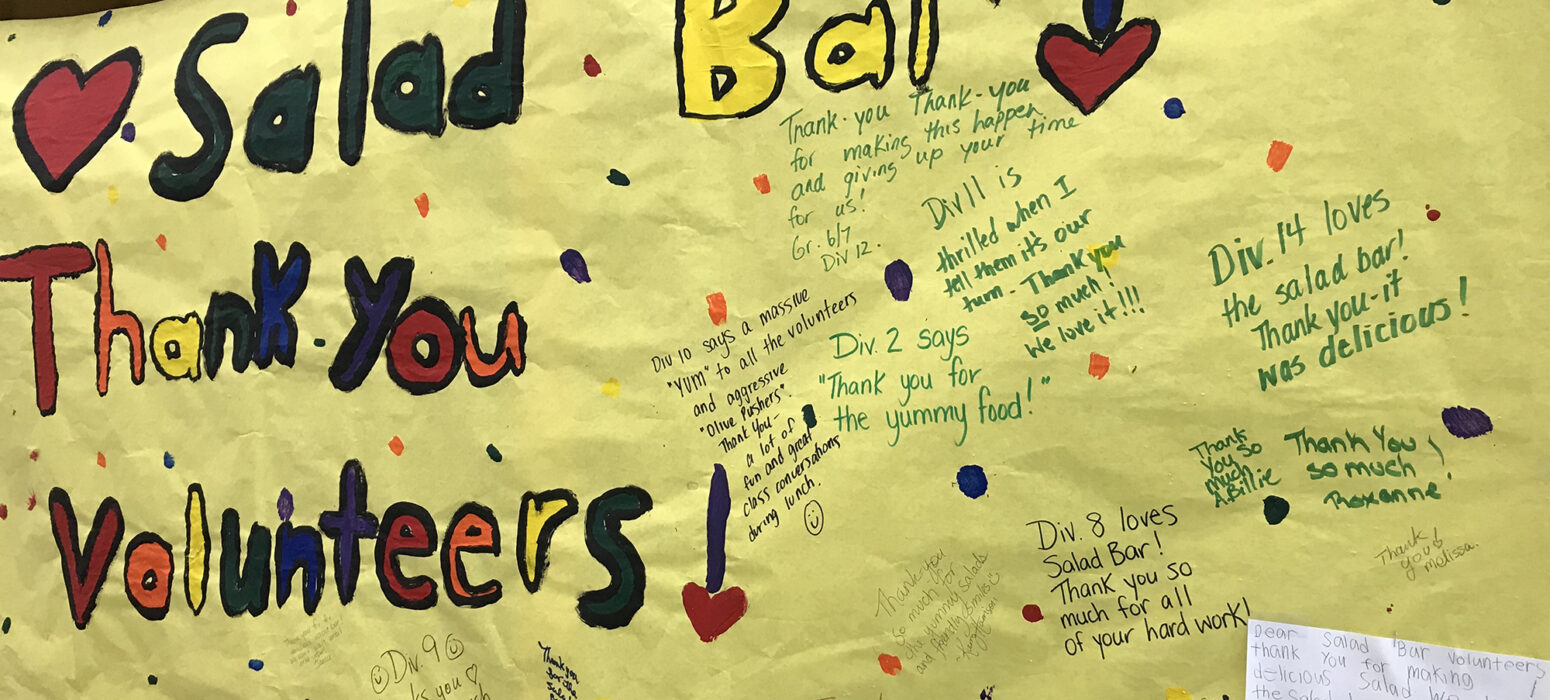 Salad Bar!
Thank-you
Volunteers!
Thank-you Thank-you
for making this happen
and giving up your time
for us!
Gr. 6/7
Div 12.
Div 11 is
thrilled when I
tell them it's our
turn - Thank you
so much!
We love it!!!
Div. 14 loves
the salad bar!
Thank you-it
was delicious!
Div 10 says a massive
"YUM" to all the volunteers
and aggressive
"Olive Pushers".
Thank You-
a lot of
fun and great
class conversations
during lunch.
Div. 2 says
"Thank you for
the yummy food!"
Thank
You so
much
A.Billie
Thank You
so much!
Roxanne
Thank
you
melissa.
Div. 8 loves
Salad Bar!
Thank you so
much for all
of your hard work!
Thank-you
so much for
the yummy salads
and friendly smiles
Div. 9
Thank you
Dear Salad Bar Volunteers
thank You for making
delicious Salad